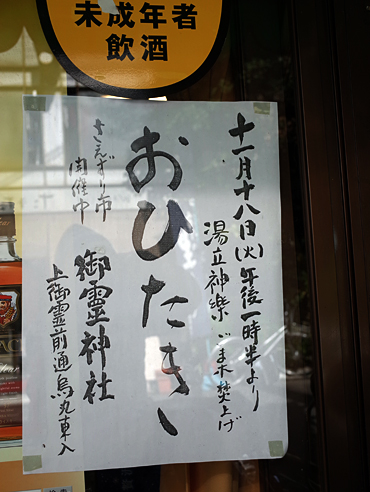 未成年者
飲酒
十一月十八日(火)午後一時半より
湯立神楽ごま木焚上げ
おひたき
さえずり市
開催中
御霊神社
上御霊前通烏丸東入